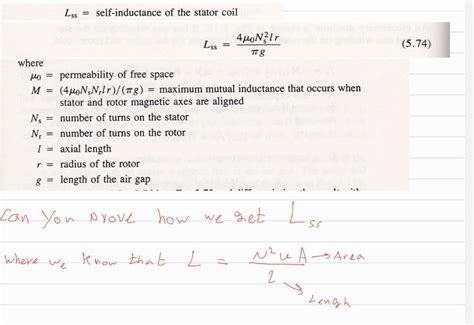 L_ss = self-inductance of the stator coil
L_ss = 4μ₀N_s²lr / πg (5.74)
where
μ₀ = permeability of free space
M = (4μ₀N_sN_rlr)/(πg) = maximum mutual inductance that occurs when
stator and rotor magnetic axes are aligned
N_s = number of turns on the stator
N_r = number of turns on the rotor
l = axial length
r = radius of the rotor
g = length of the air gap
Can you prove how we get L_ss
where we know that L = N²uA / 2 → Area
→ Lengh